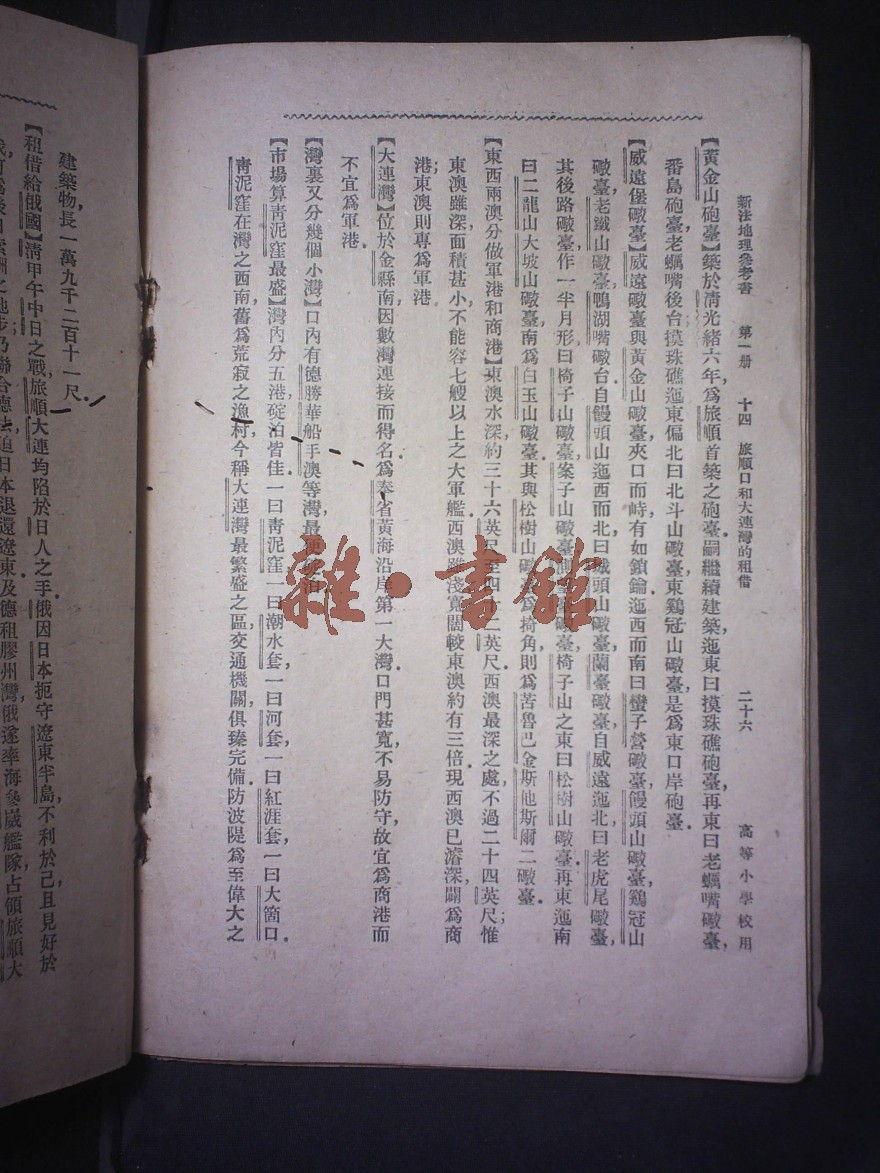 新法地理參考書　第一册　十四　旅順口和大連灣的租借　二十六　高等小學校用
【黃金山砲臺】築於清光緒六年，爲旅順首築之砲臺，嗣繼續建築，迤東曰摸珠礁砲臺，再東曰老蠣嘴礮臺，
番島砲臺，老蠣嘴後台；摸珠礁迤東偏北曰北斗山礮臺，東鷄冠山礮臺，是爲東口岸砲臺。
【威遠堡礮臺】威遠礮臺與黃金山礮臺，夾口而峙，有如鎖鑰，迤西而南曰蠻子營礮臺，饅頭山礮臺，鷄冠山
礮臺，老鐵山礮臺，鴨湖嘴礮台。自饅頭山迤西而北，曰城頭山礮臺，蘭臺礮臺，自威遠迤北，曰老虎尾礮臺，
其後路礮臺，作一半月形，曰椅子山礮臺，案子山礮臺，椅子山之東，曰松樹山礮臺。再東迤南
曰二龍山大坡山礮臺，南爲白玉山礮臺，其與松樹山礮臺爲掎角，則爲苦魯巴金斯他斯爾二礮臺。
【東西兩澳分做軍港和商港】東澳水深約三十六英尺至四十二英尺，西澳最深之處，不過二十四英尺；惟
東澳雖深，面積甚小，不能容七艘以上之大軍艦，西澳雖淺，寬闊較東澳約有三倍，現西澳已濬深，闢爲商
港；東澳則專爲軍港
【大連灣】位於金縣南，因數灣連接而得名，爲奉省黃海沿岸第一大灣。口門甚寬，不易防守，故宜爲商港而
不宜爲軍港。
【灣裏又分幾個小灣】口內有德勝華船手澳等灣，最便碇泊。
【市場算靑泥窪最盛】灣內分五港，碇泊皆佳，一曰靑泥窪，一曰潮水套，一曰河套，一曰紅涯套，一曰大箇口。
靑泥窪在灣之西南，舊爲荒寂之漁村，今稱大連灣最繁盛之區，交通機關，俱臻完備，防波隄爲至偉大之
建築物，長一萬九千二百十一尺。
【租借給俄國】清甲午中日之戰，旅順大連均陷於日人之手，俄因日本扼守遼東半島，不利於己，且見好於
乃聯合德法，迫日本退還遼東，及德租膠州灣，俄遂率海參崴艦隊，占領旅順大
雜·書館